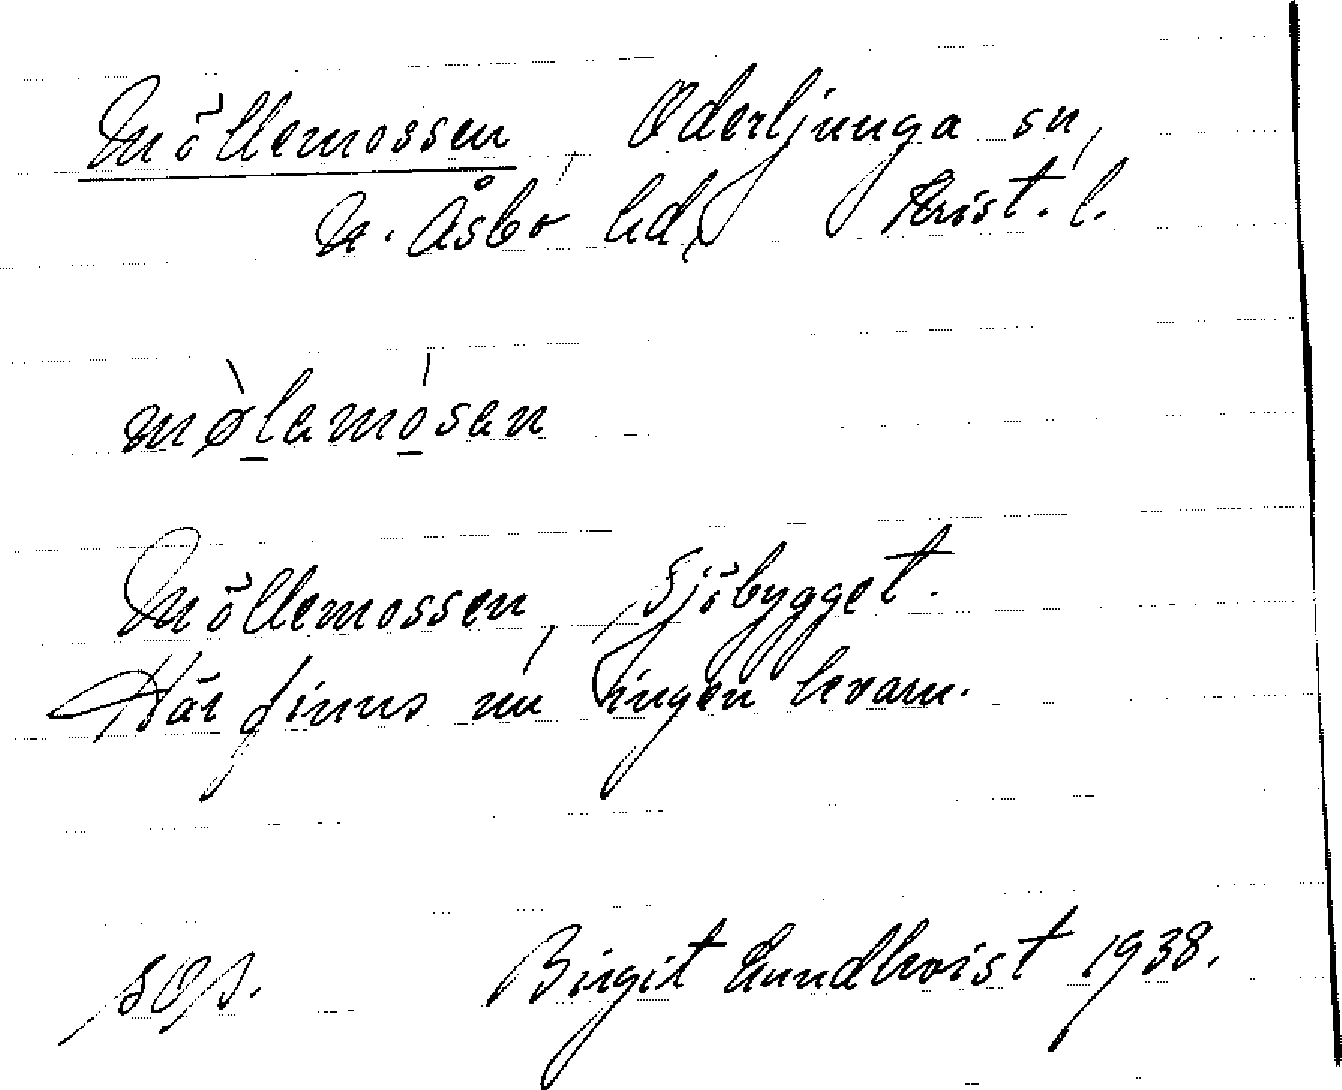 Möllemossen, Oderljunga sn,
N. Åsbo hd, Krist. l.
mølamosan
Möllemossen, Sjöbygget.
Här finns nu ingen kvarn.
Birgit Lundkvist 1938.